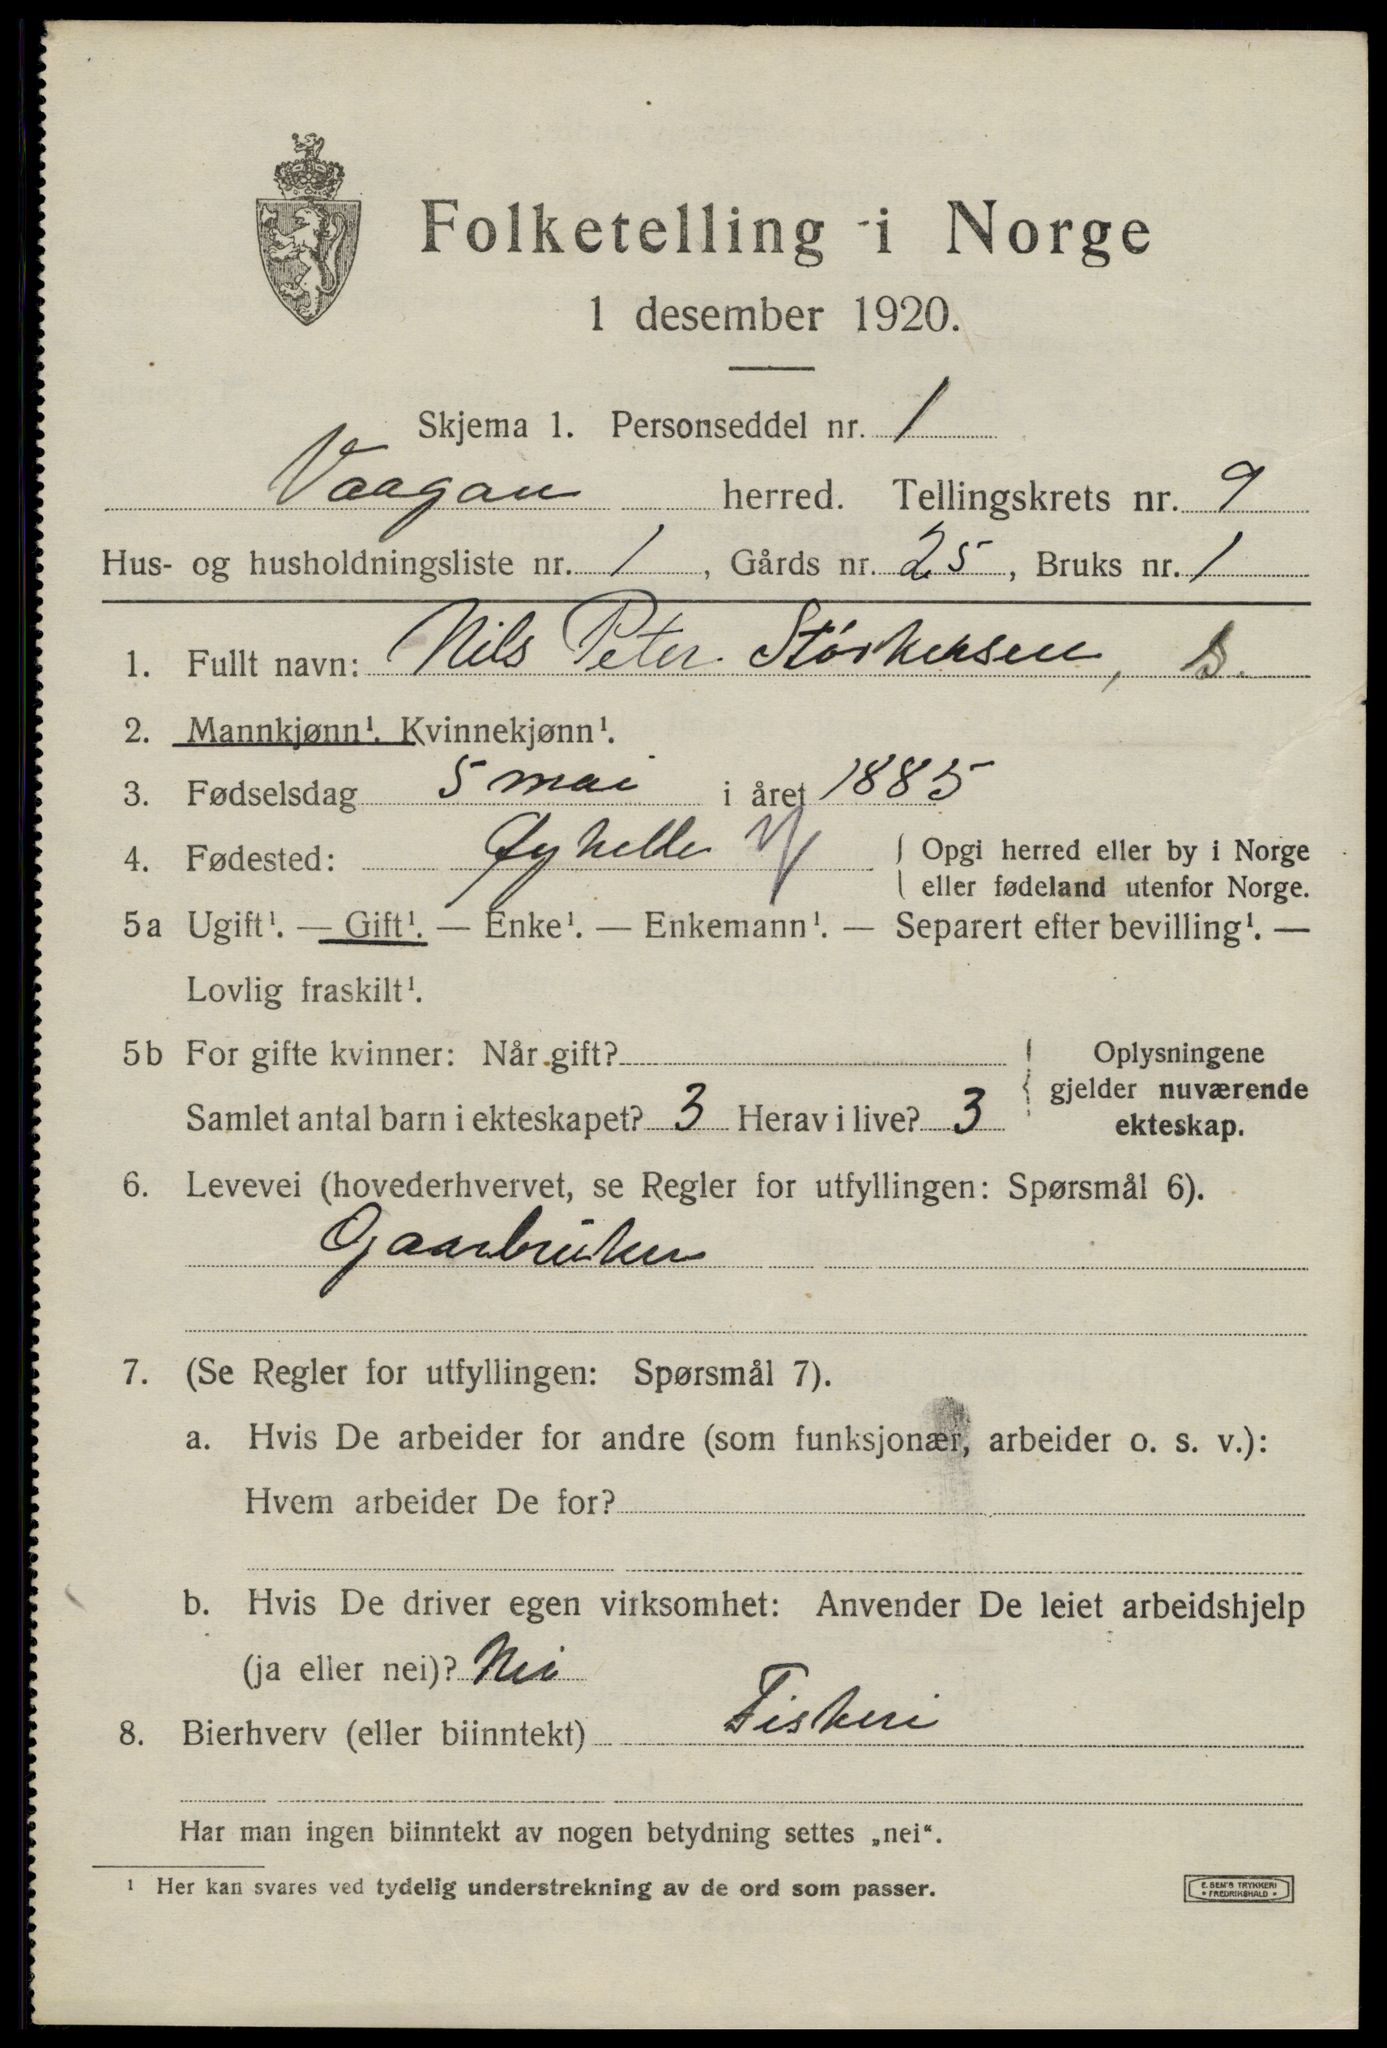 Folketelling i Norge
1 desember 1920.
Skjema 1. Personseddel nr. 1
Vaagan herred. Tellingskrets nr. 9
Hus- og husholdningsliste nr. 1, Gårds nr. 25, Bruks nr. 1
1. Fullt navn: Nils Peter Størkersen, S.
2. Mannkjønn¹. Kvinnekjønn¹.
3. Fødselsdag 5 mai i året 1885
4. Fødested: { Opgi herred eller by i Norge
eller fødeland utenfor Norge.
5a Ugift¹. — Gift¹. — Enke¹. — Enkemann¹. — Separert efter bevilling¹. —
Lovlig fraskilt¹.
5b For gifte kvinner: Når gift? { Oplysningene
gjelder nuværende
Samlet antal barn i ekteskapet? 3 Herav i live? 3 ekteskap.
6. Levevei (hovederhvervet, se Regler for utfyllingen: Spørsmål 6).
Gaarbruker
7. (Se Regler for utfyllingen: Spørsmål 7).
a. Hvis De arbeider for andre (som funksjonær, arbeider o. s. v.):
Hvem arbeider De for?
b. Hvis De driver egen virksomhet: Anvender De leiet arbeidshjelp
(ja eller nei)? Nei
8. Bierhverv (eller biinntekt) Fiskeri
Har man ingen biinntekt av nogen betydning settes „nei“.
¹ Her kan svares ved tydelig understrekning av de ord som passer.
E. SEM'S TRYKKERI
• FREDRIKSHALD •